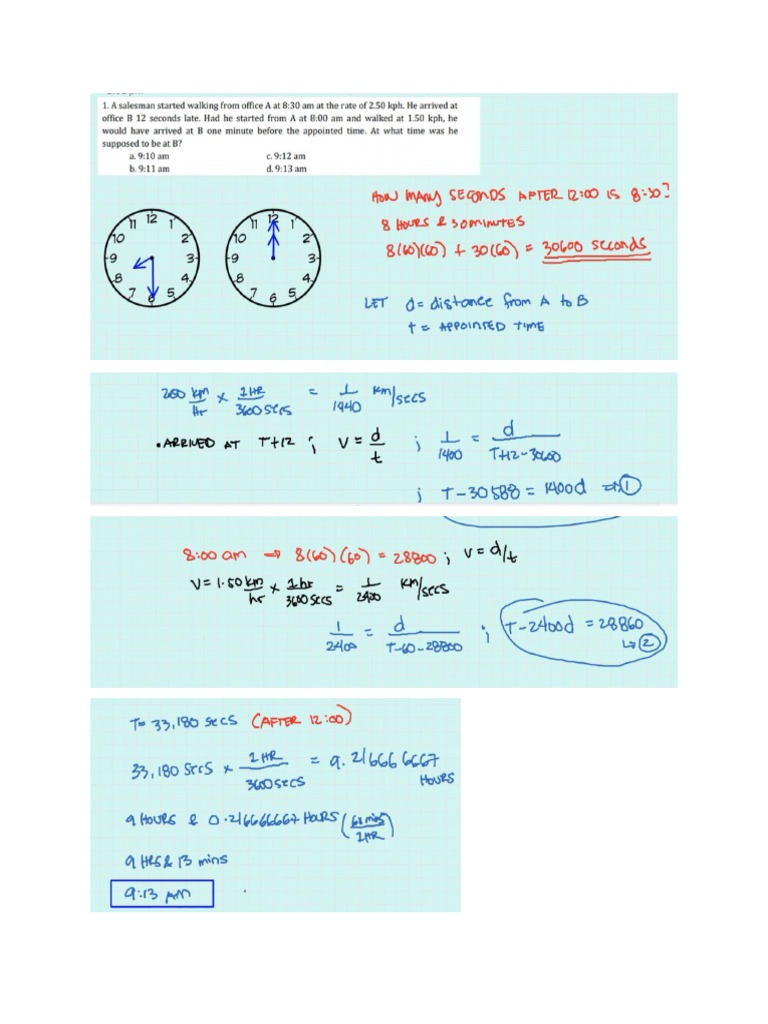 1. A salesman started walking from office A at 8:30 am at the rate of 2.50 kph. He arrived at
office B 12 seconds late. Had he started from A at 8:00 am and walked at 1.50 kph, he
would have arrived at B one minute before the appointed time. At what time was he
supposed to be at B?
a. 9:10 am c. 9:12 am
b. 9:11 am d. 9:13 am
12 11 1 10 2 9 3 8 4 7 6 5
12 11 1 10 2 9 3 8 4 7 6 5
HOW MANY SECONDS AFTER 12:00 IS 8:30?
8 HOURS & 30 MINUTES
8(60)(60) + 30(60) = 30600 seconds
LET d = distance from A to B
t = APPOINTED TIME
km/Hr x 1HR/3600 SECS = 1/1440 km/secs
• ARRIVED AT T+12 ; V = d/t ; 1/1400 = d/T+12-30600
; T-30588 = 1400d ⇒ 1
8:00 am → 8(60)(60) = 28800 ; V = d/t
V = 1.50 km/hr x 1hr/3600 secs = 1/2400 km/secs
1/2400 = d/T-60-28800 ; T-2400d = 28860
↳ 2
T = 33,180 SECS (AFTER 12:00)
33,180 SECS x 1HR/3600 SECS = 9.216666667 HOURS
9 HOURS & 0.216666667 HOURS (60 mins/1HR)
9 HRS & 13 mins
9:13 AM